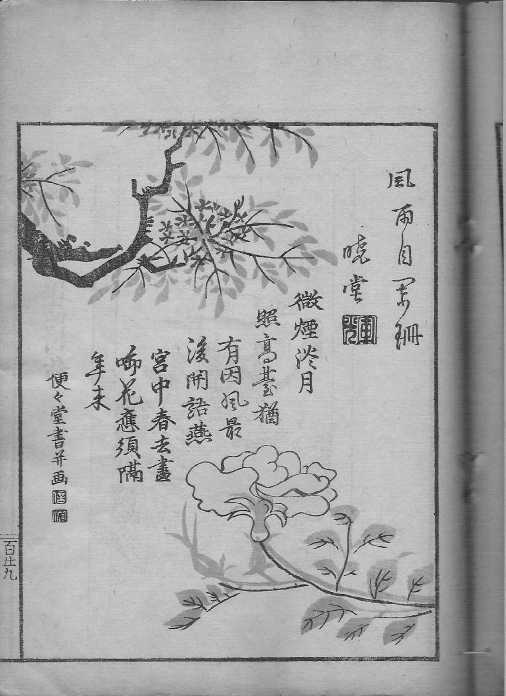 風雨自闌珊
曉堂
微煙淡月
照高臺猶
有因風最
後開語燕
宮中春去盡
啣花應須隔
年来
便々堂書并画
百廿九